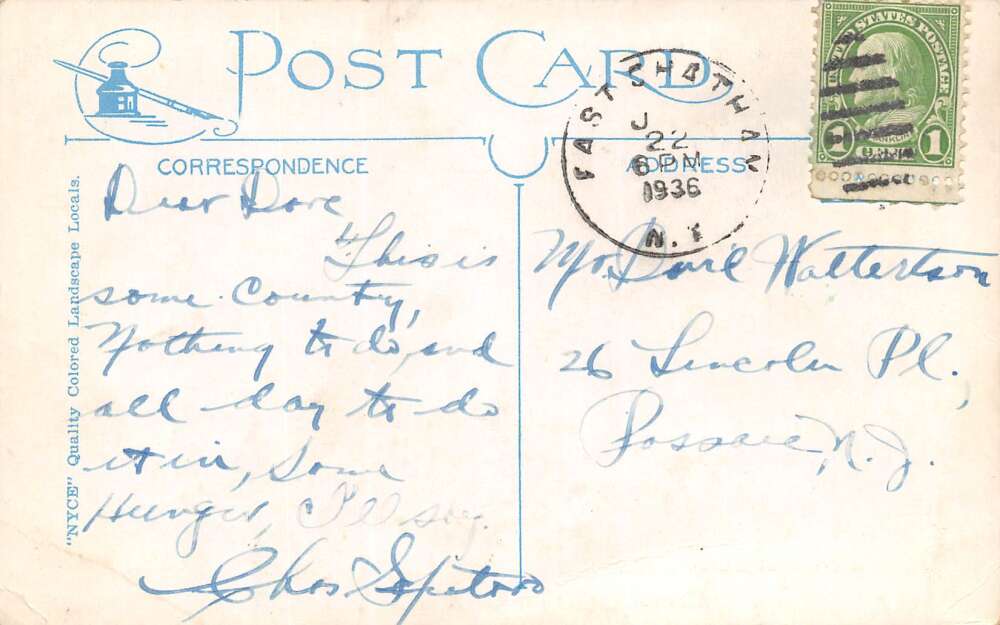 POST CARD
CORRESPONDENCE
ADDRESS
"NYCE" Quality Colored Landscape Locals.
EAST CHATHAM
J 22
6 PM
1936
N.Y.
UNITED STATES POSTAGE
FRANKLIN
1 CENT 1
Dear Dave
This is
some County,
Nothing to do, and
all day to do
it in, Some
Hunger, I'll say.
Chas
Mr. David Watterston
26 Lincoln Pl.,
Passaic, N.J.